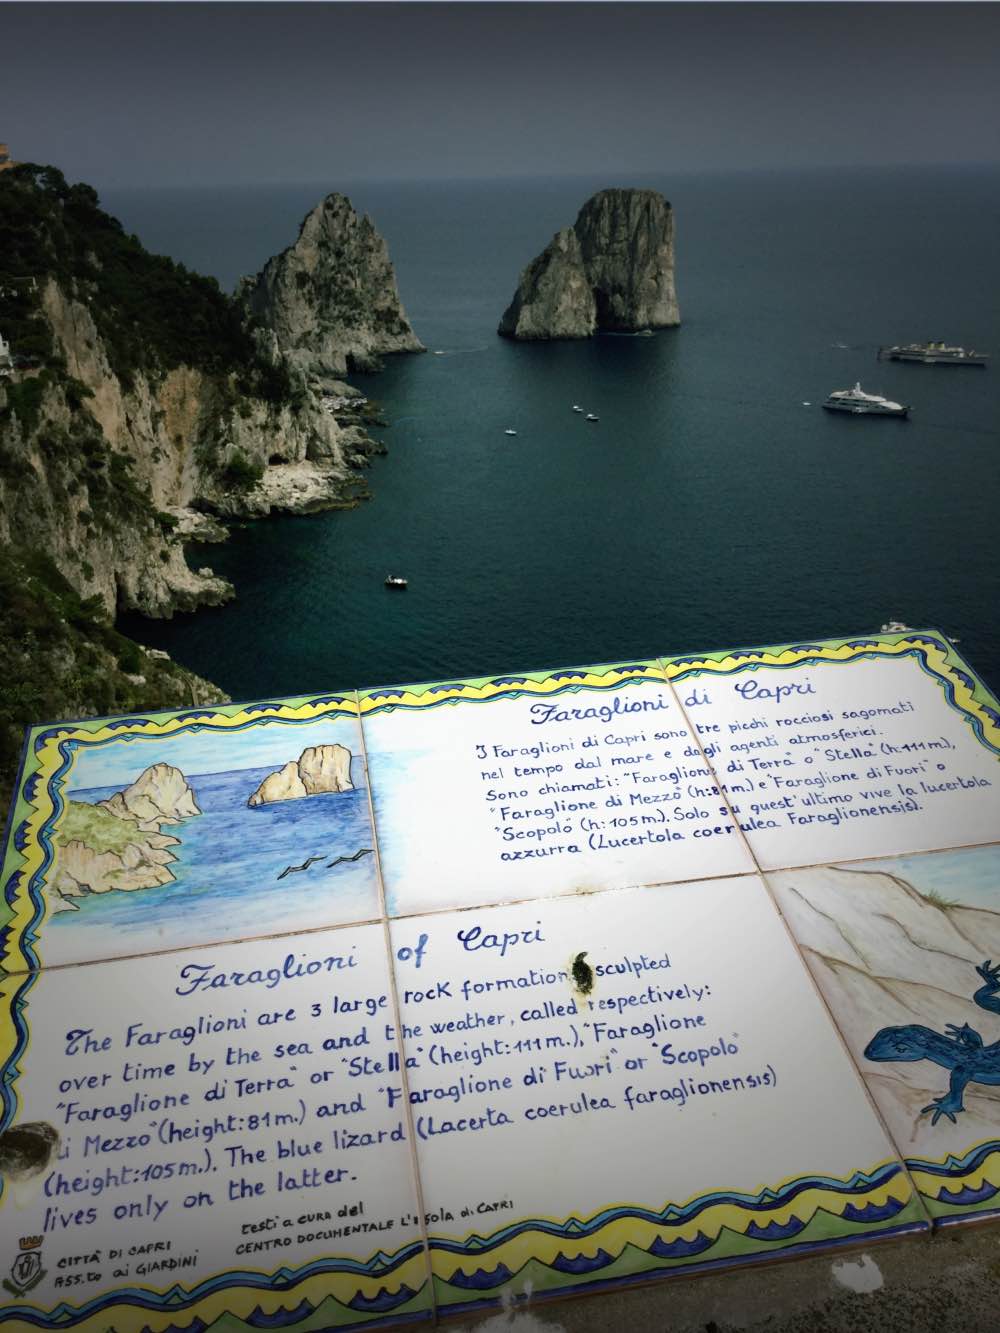 Faraglioni di Capri
I Faraglioni di Capri sono tre picchi rocciosi sagomati
nel tempo dal mare e dagli agenti atmosferici.
Sono chiamati: "Faraglione di Terra" o "Stella" (h.111m.),
"Faraglione di Mezzo" (h:81m.) e "Faraglione di Fuori" o
"Scopolo" (h:105m.). Solo su quest'ultimo vive la lucertola
azzurra (Lucertola coerulea Faraglionensis).
Faraglioni of Capri
The Faraglioni are 3 large rock formation sculpted
over time by the sea and the weather, called respectively:
"Faraglione di Terra" or "Stella" (height:111m.), "Faraglione
di Mezzo" (height:81m.) and "Faraglione di Fuori" or "Scopolo"
(height:105m.). The blue lizard (Lacerta coerulea faraglionensis)
lives only on the latter.
CITTÀ DI CAPRI
ASS.to ai GIARDINI
testi a cura del
CENTRO DOCUMENTALE L'ISOLA di CAPRI